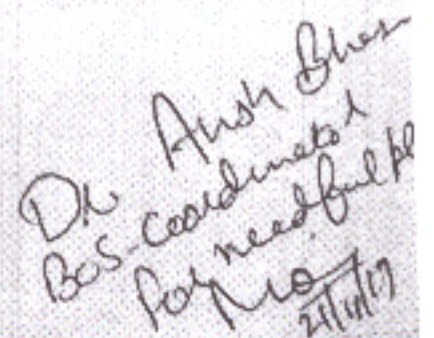 Dr Ansh Bhas
BOS-Coordinator
for needful pl
21/11/17